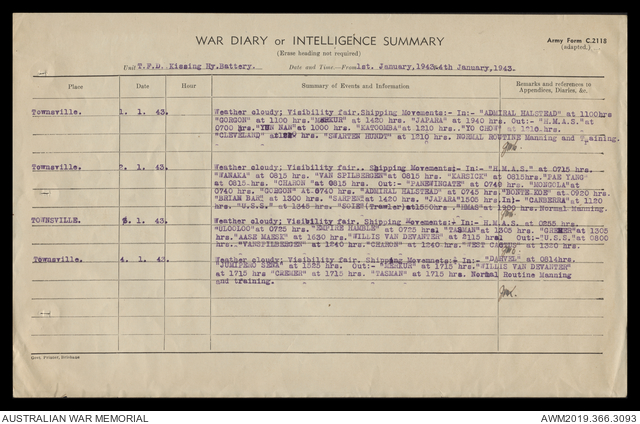 WAR DIARY or INTELLIGENCE SUMMARY
Army Form C.2118
(Erase heading not required)
(adapted.)
Unit T.F.D. Kissing Hy.Battery. Date and Time—From 1st. January,1943. 4th January,1943.
Place Date Hour Summary of Events and Information Remarks and references to Appendices, Diaries, &c.
Townsville. 1. 1. 43. Weather cloudy; Visibility fair. Shipping Movements:- In:- "ADMIRAL HALSTEAD" at 1100hrs
"GORGON" at 1100 hrs. "MERKUR" at 1420 hrs. "JAPARA" at 1940 hrs. Out:- "H.M.A.S." at
0700 hrs. "YUN NAN" at 1000 hrs "KATOOMBA" at 1210 hrs.. "YO CHOW" at 1210.hrs.
"CLEVELAND" at hrs "SWARTEN HUNDT" at 1210 hrs. NORMAL ROUTINE Manning and Training.
Townsville. 2. 1. 43. Weather cloudy; Visibility fair.. Shipping Movements:- In:- "H.M.A.S." at 0715 hrs.
"WANAKA" at 0815 hrs. "VAN SPILBERGEN" at 0815 hrs. "KARSICK" at 0815hrs. "PAK YANG"
at 0815.hrs. "CHARON" at 0815 hrs. Out:- "PANEWINGATE" at 0740 hrs. "MONGOLA" at
0740 hrs. "GORGON" at 0740 hrs. "ADMIRAL HALSTEAD" at 0745 hrs. "BONTEKOE" at 0920 hrs.
"BRIAN BARI" at 1300 hrs. "SARPEN" at 1420 hrs. "JAPARA" 1505 hrs. In:- "CANBERRA" at 1120
hrs. "U.S.S." at 1345 hrs. (Trawler) at 1550hrs. "HMAS" at 1900 hrs. Normal Manning.
TOWNSVILLE. 3.1. 43. Weather cloudy; Visibility fair. Shipping Movements:- In:- H.M.A.S. at 0255 hrs.
"ULOOLOO" at 0725 hrs. "EMPIRE HAMBLE" at 0725 hrs, "TASMAN" at 1305 hrs. "CREMER" at 1305
hrs. "AASE MAESK" at 1630 hrs. "WILLIS VAN DEVANTER" at 2115 hrs. Out:- "U.S.S." at 0800
hrs.. "VANSPILBERGEN" at 1240 hrs. "CHARON" at 1240 hrs. "WEST " at 1350 hrs.
Townsville. 4. 1. 43. Weather cloudy; Visibility fair. Shipping Movements:- In:- "DARVEL" at 0814hrs.
"JUNIPERO SERA" at 1525 hrs. Out:- "MERKUR" at 1715 hrs. "WILLIS VAN DEVANTER"
at 1715 hrs. "CREMER" at 1715 hrs. "TASMAN" at 1715.hrs. Normal Routine Manning
and training.
Govt. Printer, Brisbane
AUSTRALIAN WAR MEMORIAL
AWM2019.366.3093